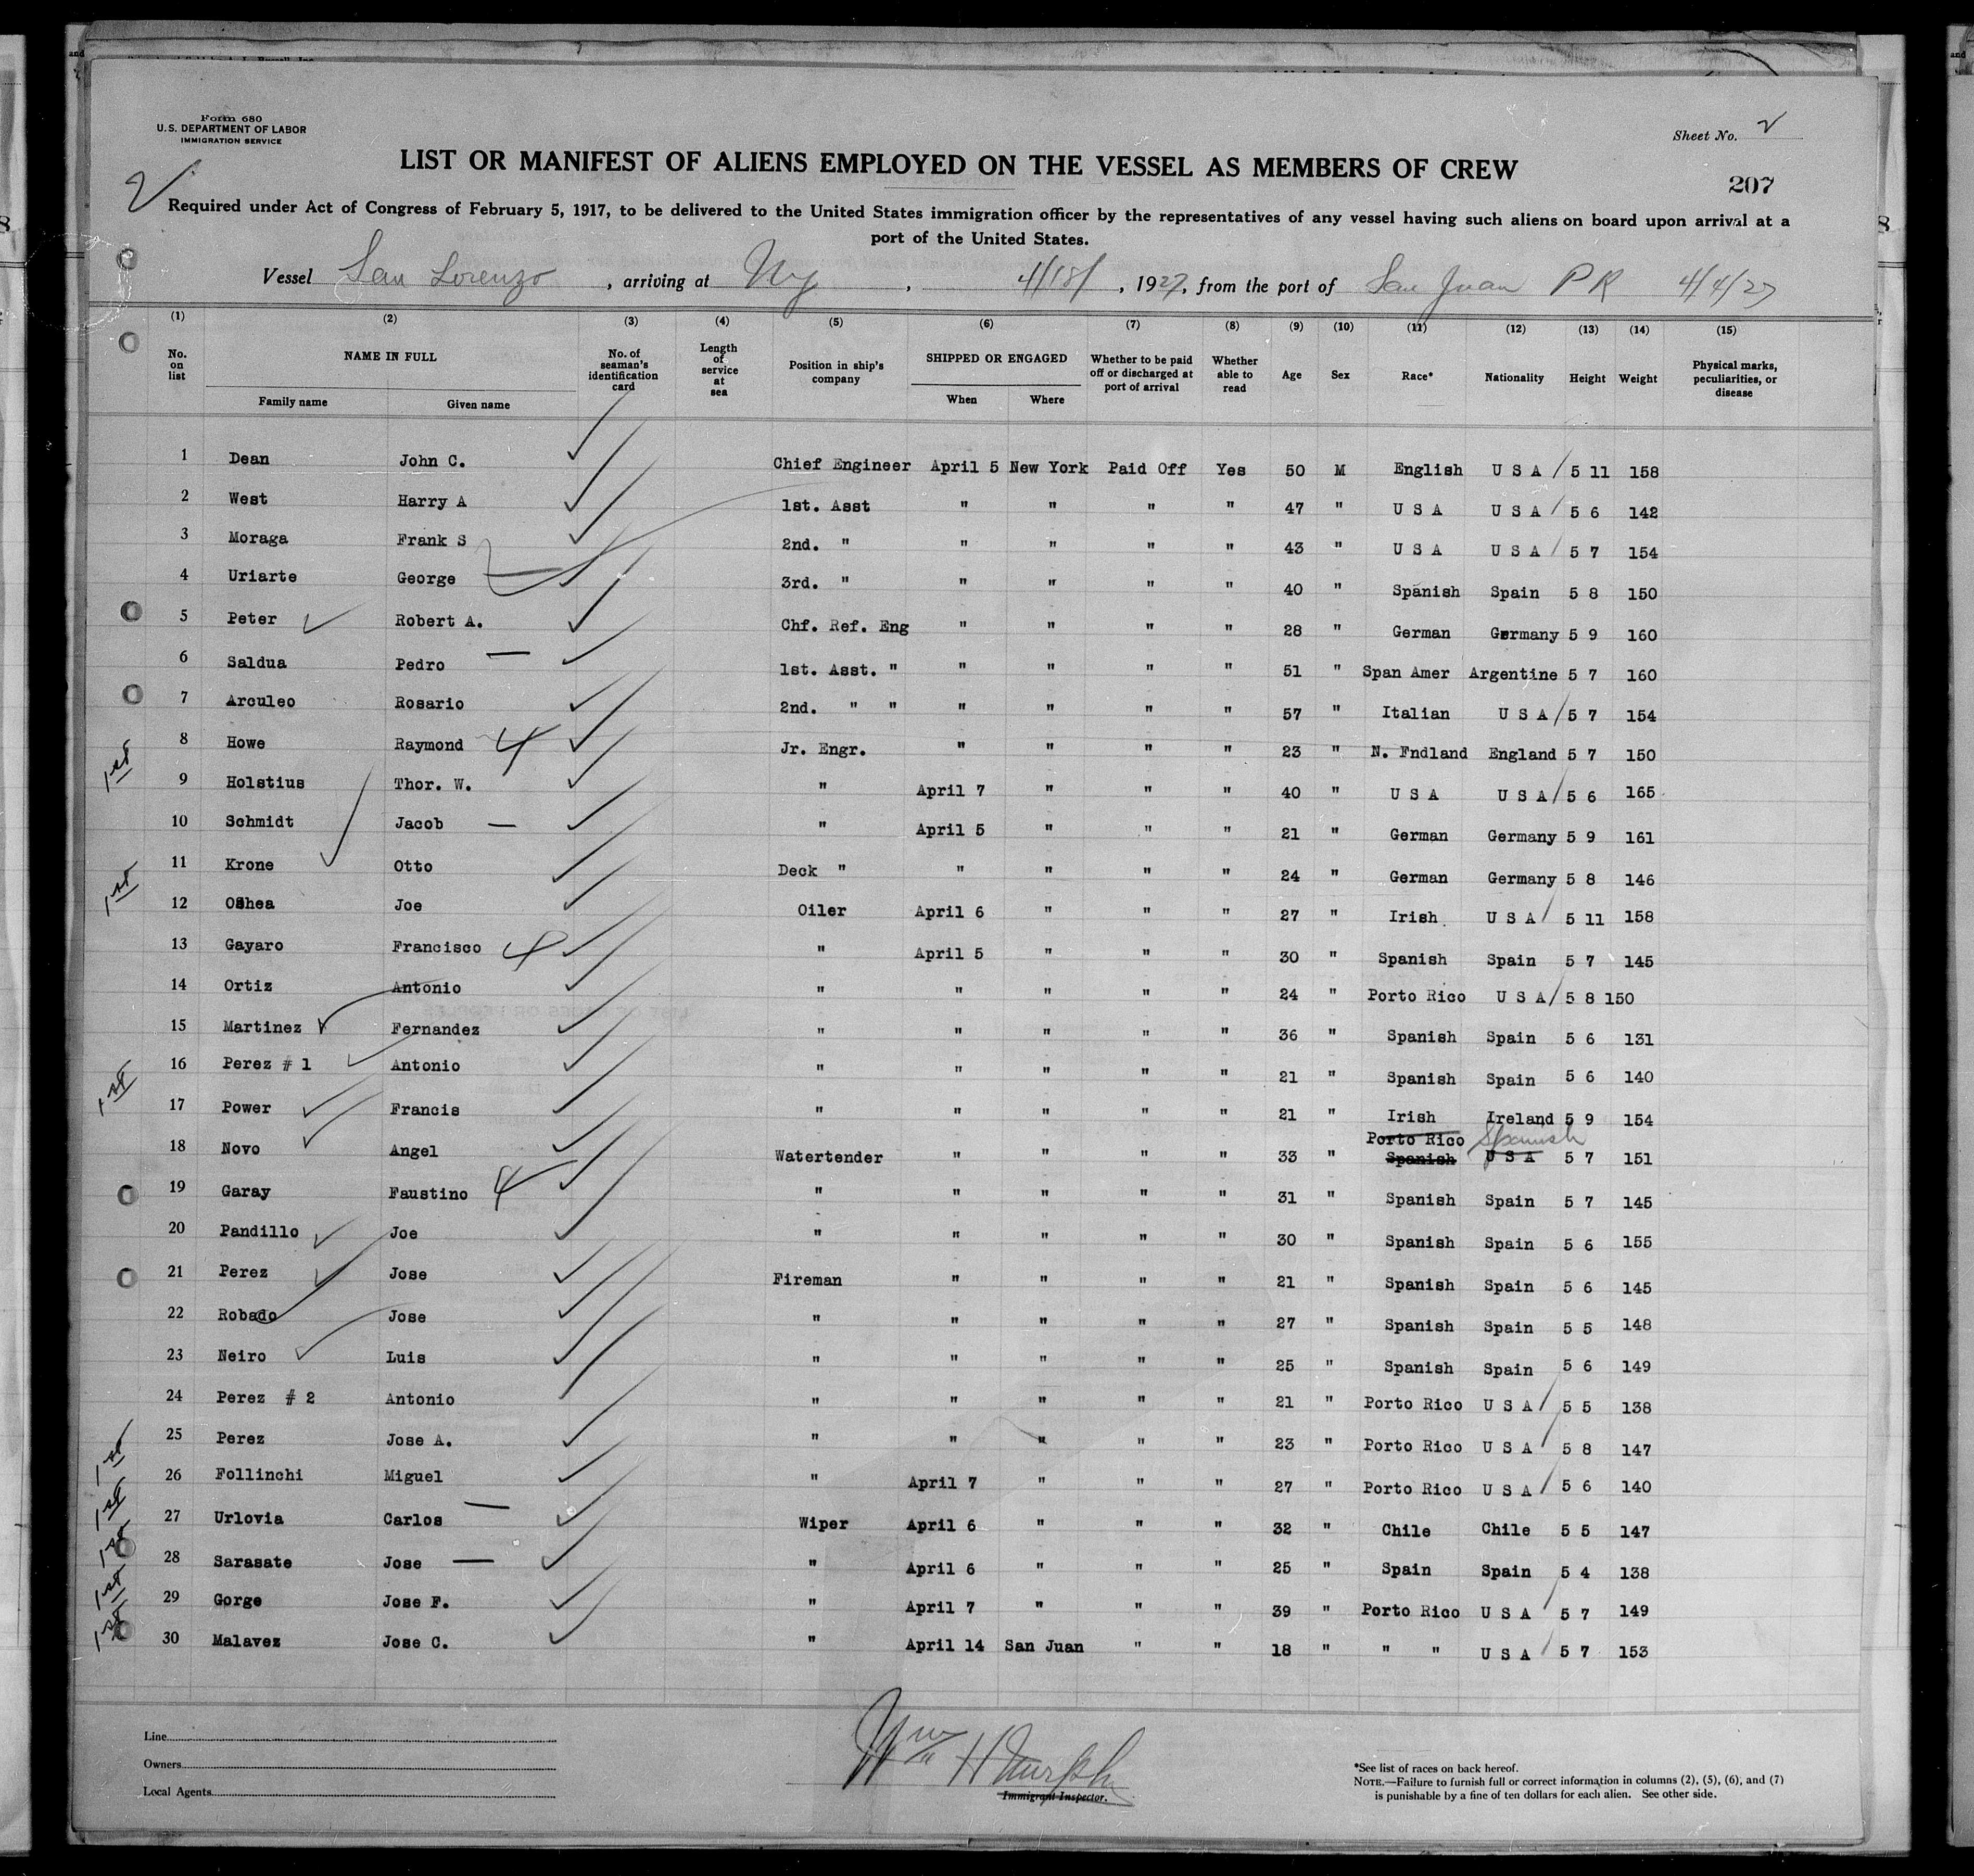 Form 680
U.S. DEPARTMENT OF LABOR
IMMIGRATION SERVICE
Sheet No. 2
LIST OR MANIFEST OF ALIENS EMPLOYED ON THE VESSEL AS MEMBERS OF CREW
207
2
Required under Act of Congress of February 5, 1917, to be delivered to the United States immigration officer by the representatives of any vessel having such aliens on board upon arrival at a
port of the United States.
Vessel San Lorenzo, arriving at Ny, 4/18/, 1927, from the port of San Juan PR 4/4/27
(1) (2) (3) (4) (5) (6) (7) (8) (9) (10) (11) (12) (13) (14) (15)
No. on list NAME IN FULL Family name Given name No. of seaman's identification card Length of service at sea Position in ship's company SHIPPED OR ENGAGED When Where Whether to be paid off or discharged at port of arrival Whether able to read Age Sex Race* Nationality Height Weight Physical marks, peculiarities, or disease
1 Dean John C. Chief Engineer April 5 New York Paid Off Yes 50 M English U S A 5 11 158
2 West Harry A 1st. Asst " " " " 47 " U S A U S A 5 6 142
3 Moraga Frank S 2nd. " " " " " 43 " U S A U S A 5 7 154
4 Uriarte George 3rd. " " " " " 40 " Spanish Spain 5 8 150
5 Peter Robert A. Chf. Ref. Eng " " " " 28 " German Germany 5 9 160
6 Saldua Pedro 1st. Asst. " " " " " 51 " Span Amer Argentine 5 7 160
7 Arculeo Rosario 2nd. " " " " " " 57 " Italian U S A 5 7 154
8 Howe Raymond 4 Jr. Engr. " " " " 23 " N. Fndland England 5 7 150
1st 9 Holstius Thor. W. " April 7 " " " 40 " U S A U S A 5 6 165
10 Schmidt Jacob " April 5 " " " 21 " German Germany 5 9 161
11 Krone Otto Deck " " " " " 24 " German Germany 5 8 146
1st 12 OShea Joe Oiler April 6 " " " 27 " Irish U S A 5 11 158
13 Gayaro Francisco 4 " April 5 " " " 30 " Spanish Spain 5 7 145
14 Ortiz Antonio " " " " " 24 " Porto Rico U S A 5 8 150
15 Martinez Fernandez " " " " " 36 " Spanish Spain 5 6 131
16 Perez # 1 Antonio " " " " " 21 " Spanish Spain 5 6 140
1st 17 Power Francis " " " " " 21 " Irish Ireland 5 9 154
Porto Rico Spanish
18 Novo Angel Watertender " " " " 33 " Spanish U S A 5 7 151
19 Garay Faustino 4 " " " " " 31 " Spanish Spain 5 7 145
20 Pandillo Joe " " " " " 30 " Spanish Spain 5 6 155
21 Perez Jose Fireman " " " " 21 " Spanish Spain 5 6 145
22 Robado Jose " " " " " 27 " Spanish Spain 5 5 148
23 Neiro Luis " " " " " 25 " Spanish Spain 5 6 149
24 Perez # 2 Antonio " " " " " 21 " Porto Rico U S A 5 5 138
25 Perez Jose A. " " " " " 23 " Porto Rico U S A 5 8 147
1st 26 Follinchi Miguel " April 7 " " " 27 " Porto Rico U S A 5 6 140
1st 27 Urlovia Carlos Wiper April 6 " " " 32 " Chile Chile 5 5 147
1st 28 Sarasate Jose " April 6 " " " 25 " Spain Spain 5 4 138
1st 29 Gorge Jose F. " April 7 " " " 39 " Porto Rico U S A 5 7 149
1st 30 Malavez Jose C. " April 14 San Juan " " 18 " " " U S A 5 7 153
Line
Owners
Local Agents
Wm H Murphy
Immigrant Inspector.
*See list of races on back hereof.
NOTE.—Failure to furnish full or correct information in columns (2), (5), (6), and (7)
is punishable by a fine of ten dollars for each alien. See other side.